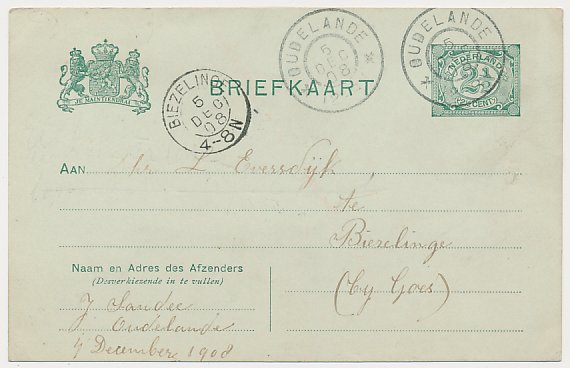 OUDELANDE
5
DEC
08
OUDELANDE
5
NEDERLAND
2½
CENT
JE MAINTIENDRAI
BIEZELING
5
DEC
08
4-8N
BRIEFKAART
AAN
L Eversdijk,
te
Bieselinge
(by Goes)
Naam en Adres des Afzenders
(Desverkiezende in te vullen)
J Sandee
Oudelande
4 December 1908